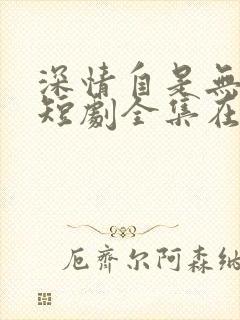 深情自是無
短劇全集在
厄齊尔阿森納